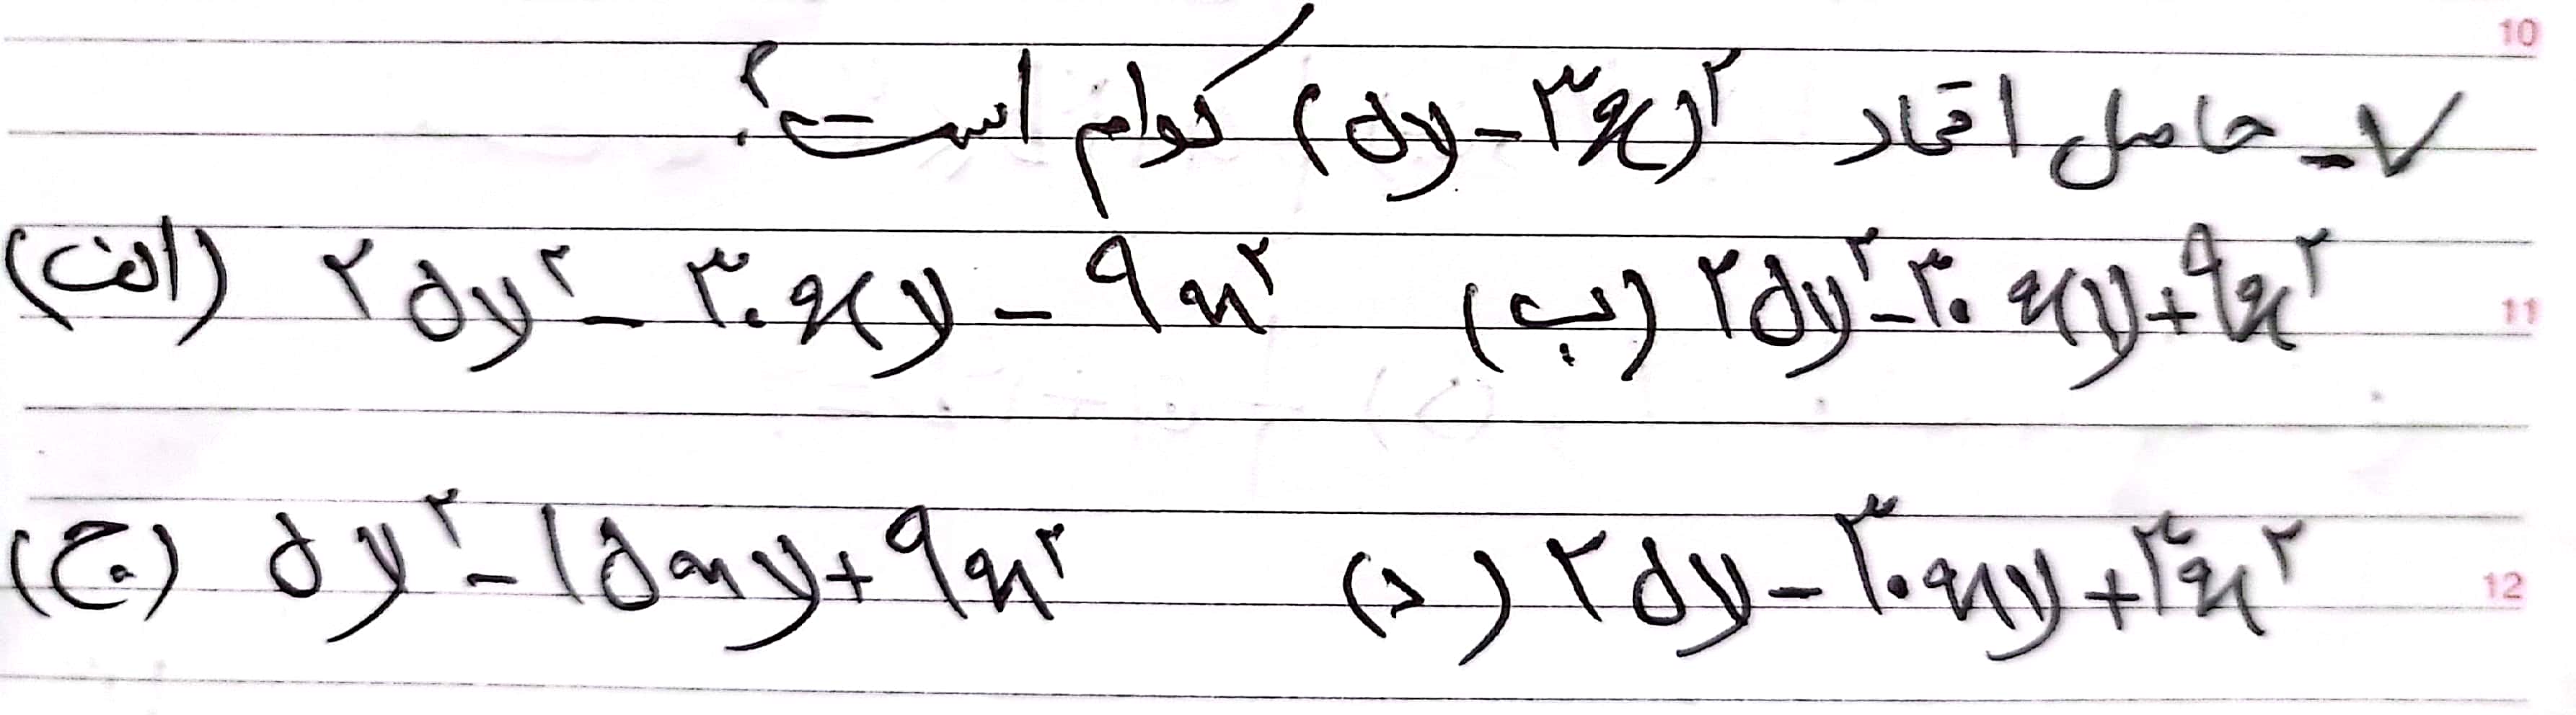 10
۷- حاصل اتحاد (۵y-۳x)^۲ کدام است؟
(الف) ۲۵y^۲ - ۳۰xy - ۹x^۲ (ب) ۲۵y^۲ - ۳۰xy + ۹x^۲
11
(ج) ۵y^۲ - ۱۵xy + ۹x^۲ (د) ۲۵y - ۳۰xy + ۳x^۲
12